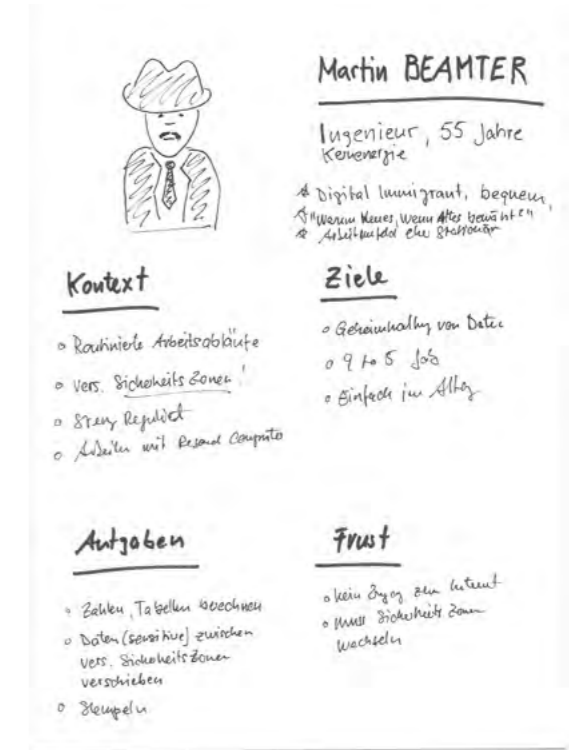 Martin BEAMTER
Ingenieur, 55 Jahre
Kernenergie
Digital Immigrant, bequem,
"Warum Neues, wenn Altes bewährt?"
Arbeitsumfeld eher Stationär
Kontext
Routinierte Arbeitsabläufe
Vers. Sicherheits Zonen!
Streng Reguliert
Arbeiten mit Personal Computer
Ziele
Geheimhaltung von Daten
9 to 5 Job
Einfach im Alltag
Aufgaben
Zahlen, Tabellen berechnen
Daten (sensitive) zwischen
vers. Sicherheits Zonen
verschieben
Stempeln
Frust
kein Zugang zum Internet
Muss Sicherheits Zonen
wechseln